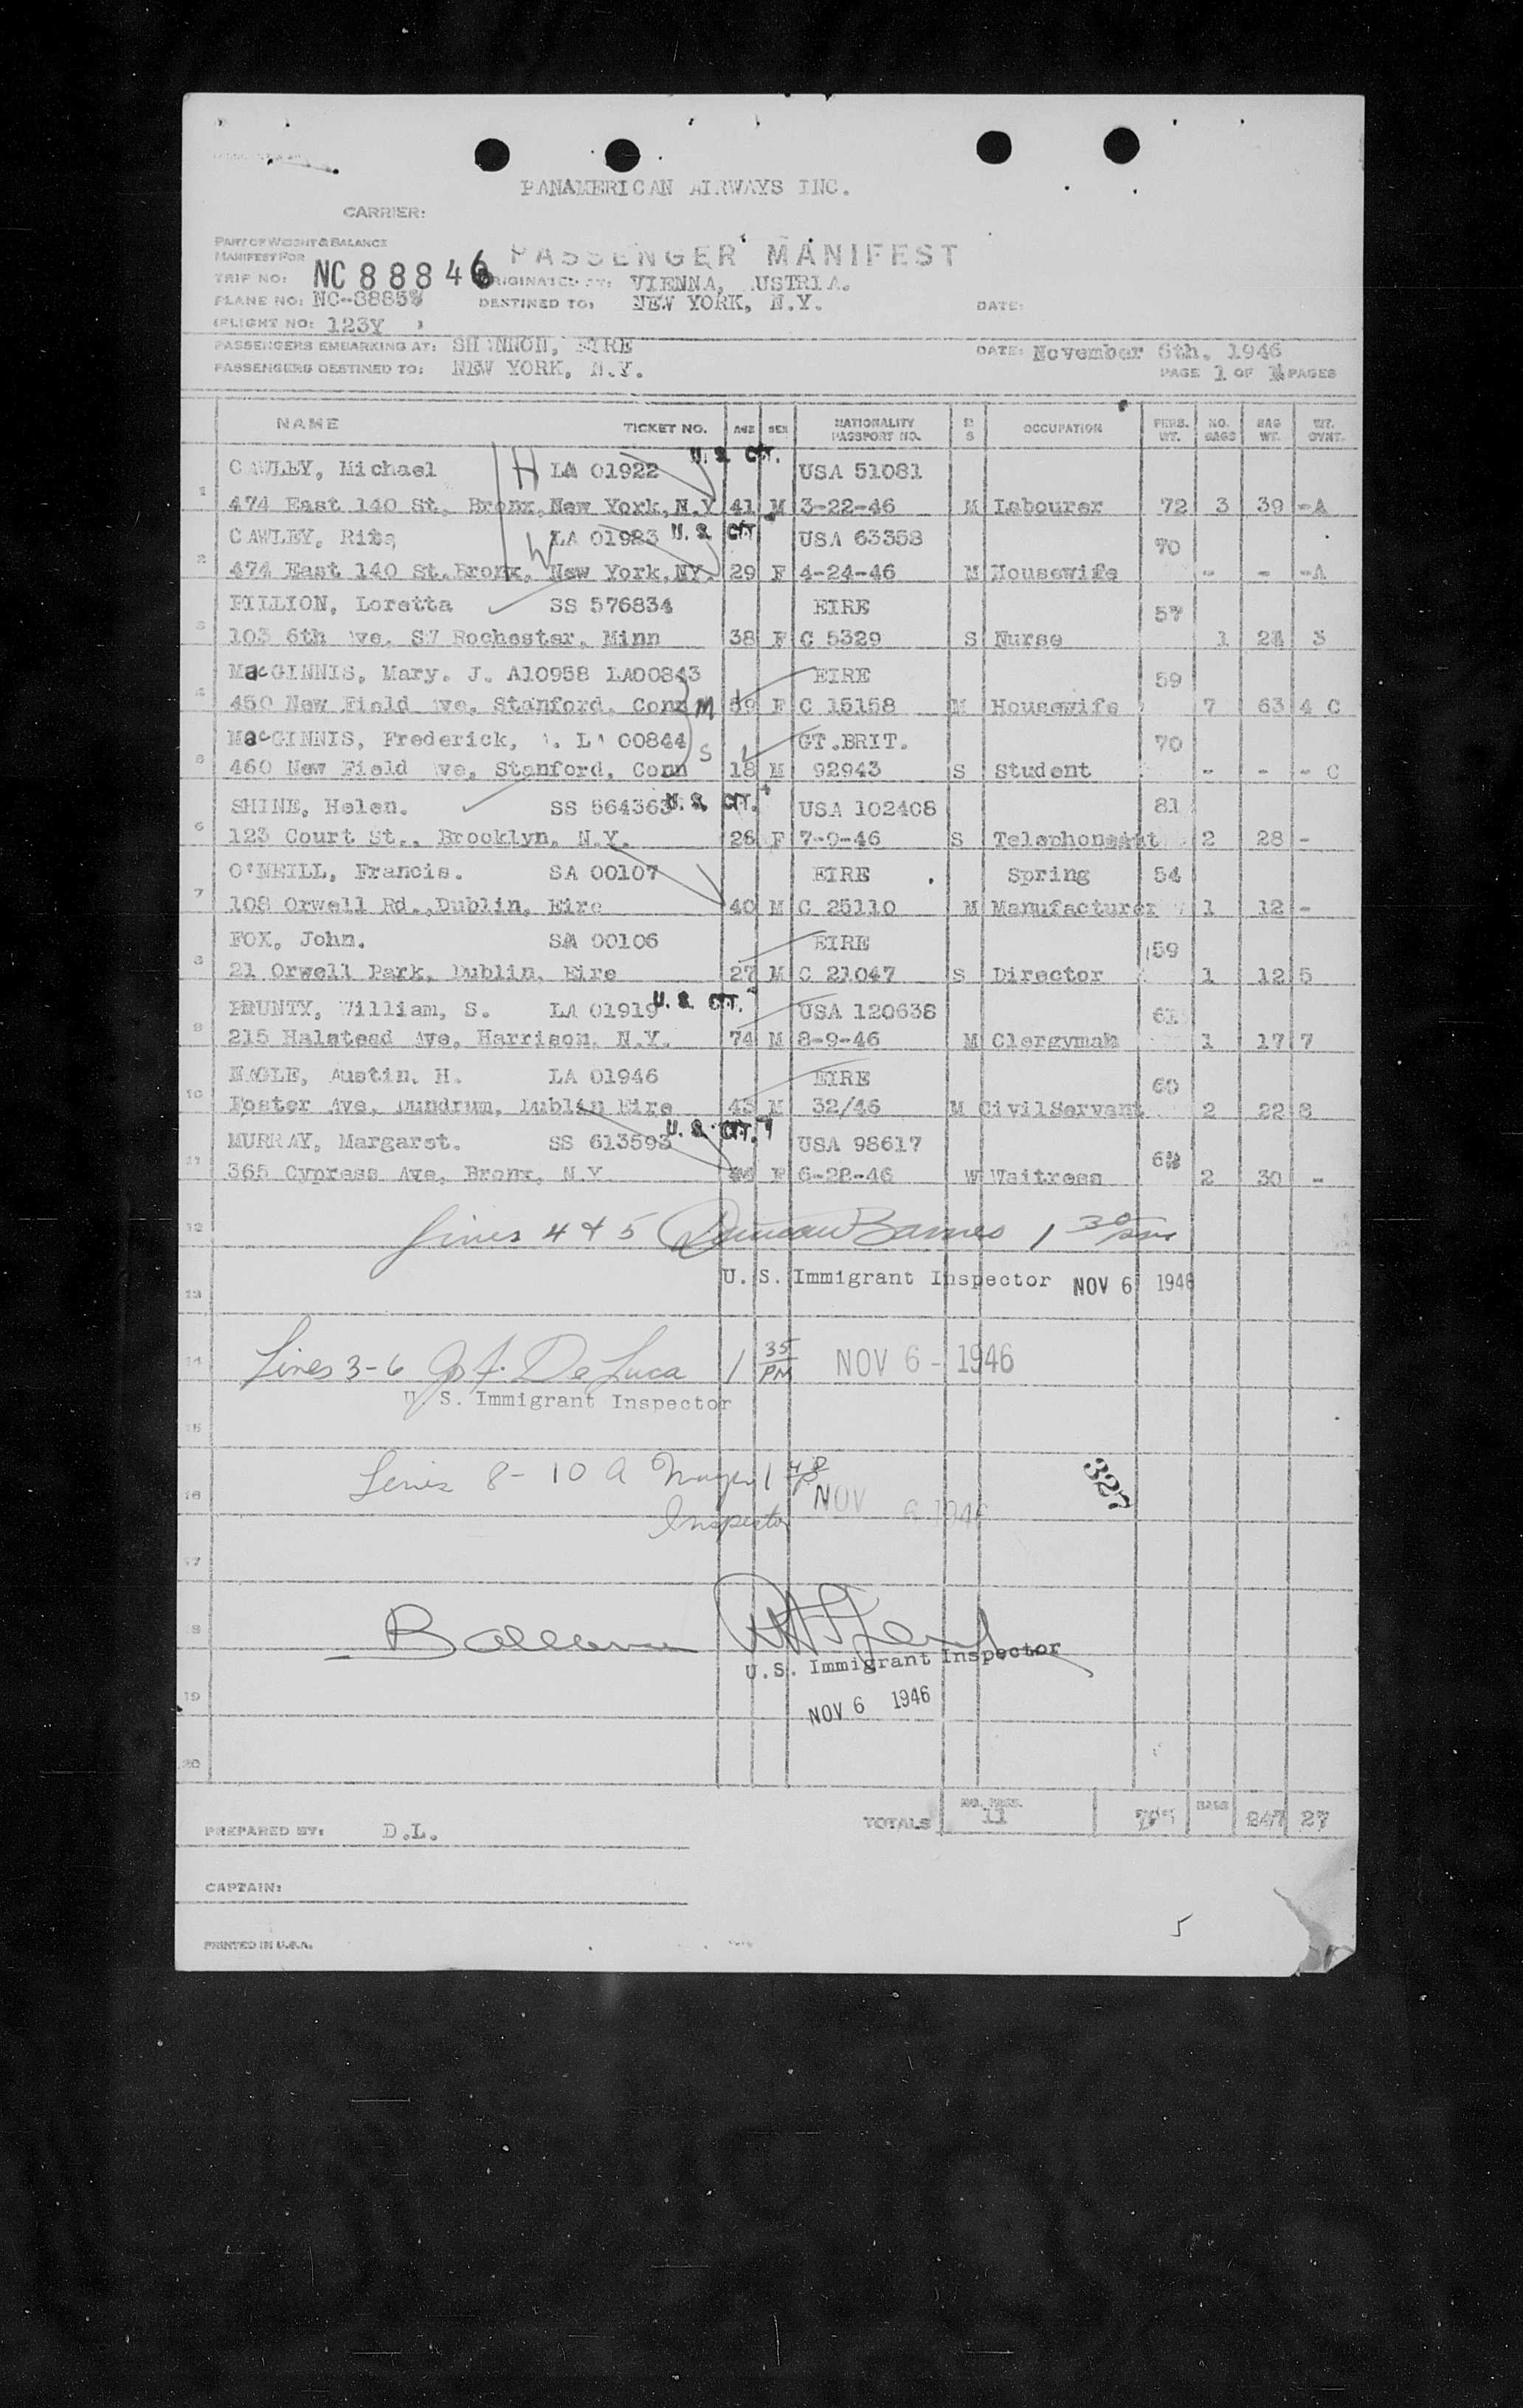 PANAMERICAN AIRWAYS INC.
CARRIER:
PART OF WEIGHT & BALANCE
MANIFEST FOR
PASSENGER MANIFEST
TRIP NO: NC 88846 ORIGINATED AT: VIENNA, USTRIA.
PLANE NO: NC-8885 DESTINED TO: NEW YORK, N.Y. DATE:
(FLIGHT NO: 123Y )
PASSENGERS EMBARKING AT: SHANNON, EIRE DATE: November 6th. 1946
PASSENGERS DESTINED TO: NEW YORK, N.Y. PAGE 1 OF PAGES
NAME TICKET NO. AGE SEX NATIONALITY PASSPORT NO. M S OCCUPATION PERS. WT. NO. BAGS BAG WT. WT. OVNT.
CAWLEY, Michael H LA 01922 U.S. CIT. USA 51081
1 474 East 140 St. Bronx, New York, N.Y 41 M 3-22-46 M Labourer 72 3 39 -A
CAWLEY, Rita W LA 01923 U.S. CIT. USA 63358 70
2 474 East 140 St. Bronx, New York, NY. 29 F 4-24-46 M Housewife - - -A
FILLION, Loretta SS 576834 EIRE 57
3 103 6th Ave. SW Rochester, Minn 38 F C 5329 S Nurse 1 24 3
MacGINNIS, Mary. J. A10958 LA00843 EIRE 59
4 450 New Field Ave, Stanford, Conn M 59 F C 15158 M Housewife 7 63 4 C
MacGINNIS, Frederick, LA 00844 S GT.BRIT. 70
5 460 New Field Ave, Stanford, Conn 18 M 92943 S Student - - - C
SHINE, Helen. SS 564363 U.S. CIT. USA 102408 81
6 123 Court St., Brooklyn, N.Y. 26 F 7-9-46 S Telephonist 2 28 -
O'NEILL, Francis. SA 00107 EIRE Spring 54
7 108 Orwell Rd., Dublin, Eire 40 M C 25110 M Manufacturer 1 12 -
FOX, John. SA 00106 EIRE 59
8 21 Orwell Park, Dublin, Eire 27 M C 21047 S Director 1 12 5
PRUNTY, William, S. LA 01919 U.S. CIT. USA 120638 61
9 215 Halstead Ave, Harrison, N.Y. 74 M 8-9-46 M Clergyman 1 17 7
NAGLE, Austin. H. LA 01946 EIRE 60
10 Foster Ave, Dundrum, Dublin Eire 43 M 32/46 M CivilServant 2 22 8
MURRAY, Margaret. SS 613593 U.S. CIT. USA 98617
11 365 Cypress Ave, Bronx, N.Y. F 6-28-46 W Waitress 2 30 -
12 Lines 4 & 5 Duncan Barnes 1 30 pm
U.S. Immigrant Inspector NOV 6 1946
13
14 Lines 3-6 De Luca 1 35 PM NOV 6 - 1946
U.S. Immigrant Inspector
15
Lines 8-10 A 1
16 Inspector NOV 6 1946 327
17
18 Balance
U.S. Immigrant Inspector
19 NOV 6 1946
20
TOTALS NO. PASS. 11 BAGS 247 27
PREPARED BY: D.L.
CAPTAIN:
5
PRINTED IN U.S.A.